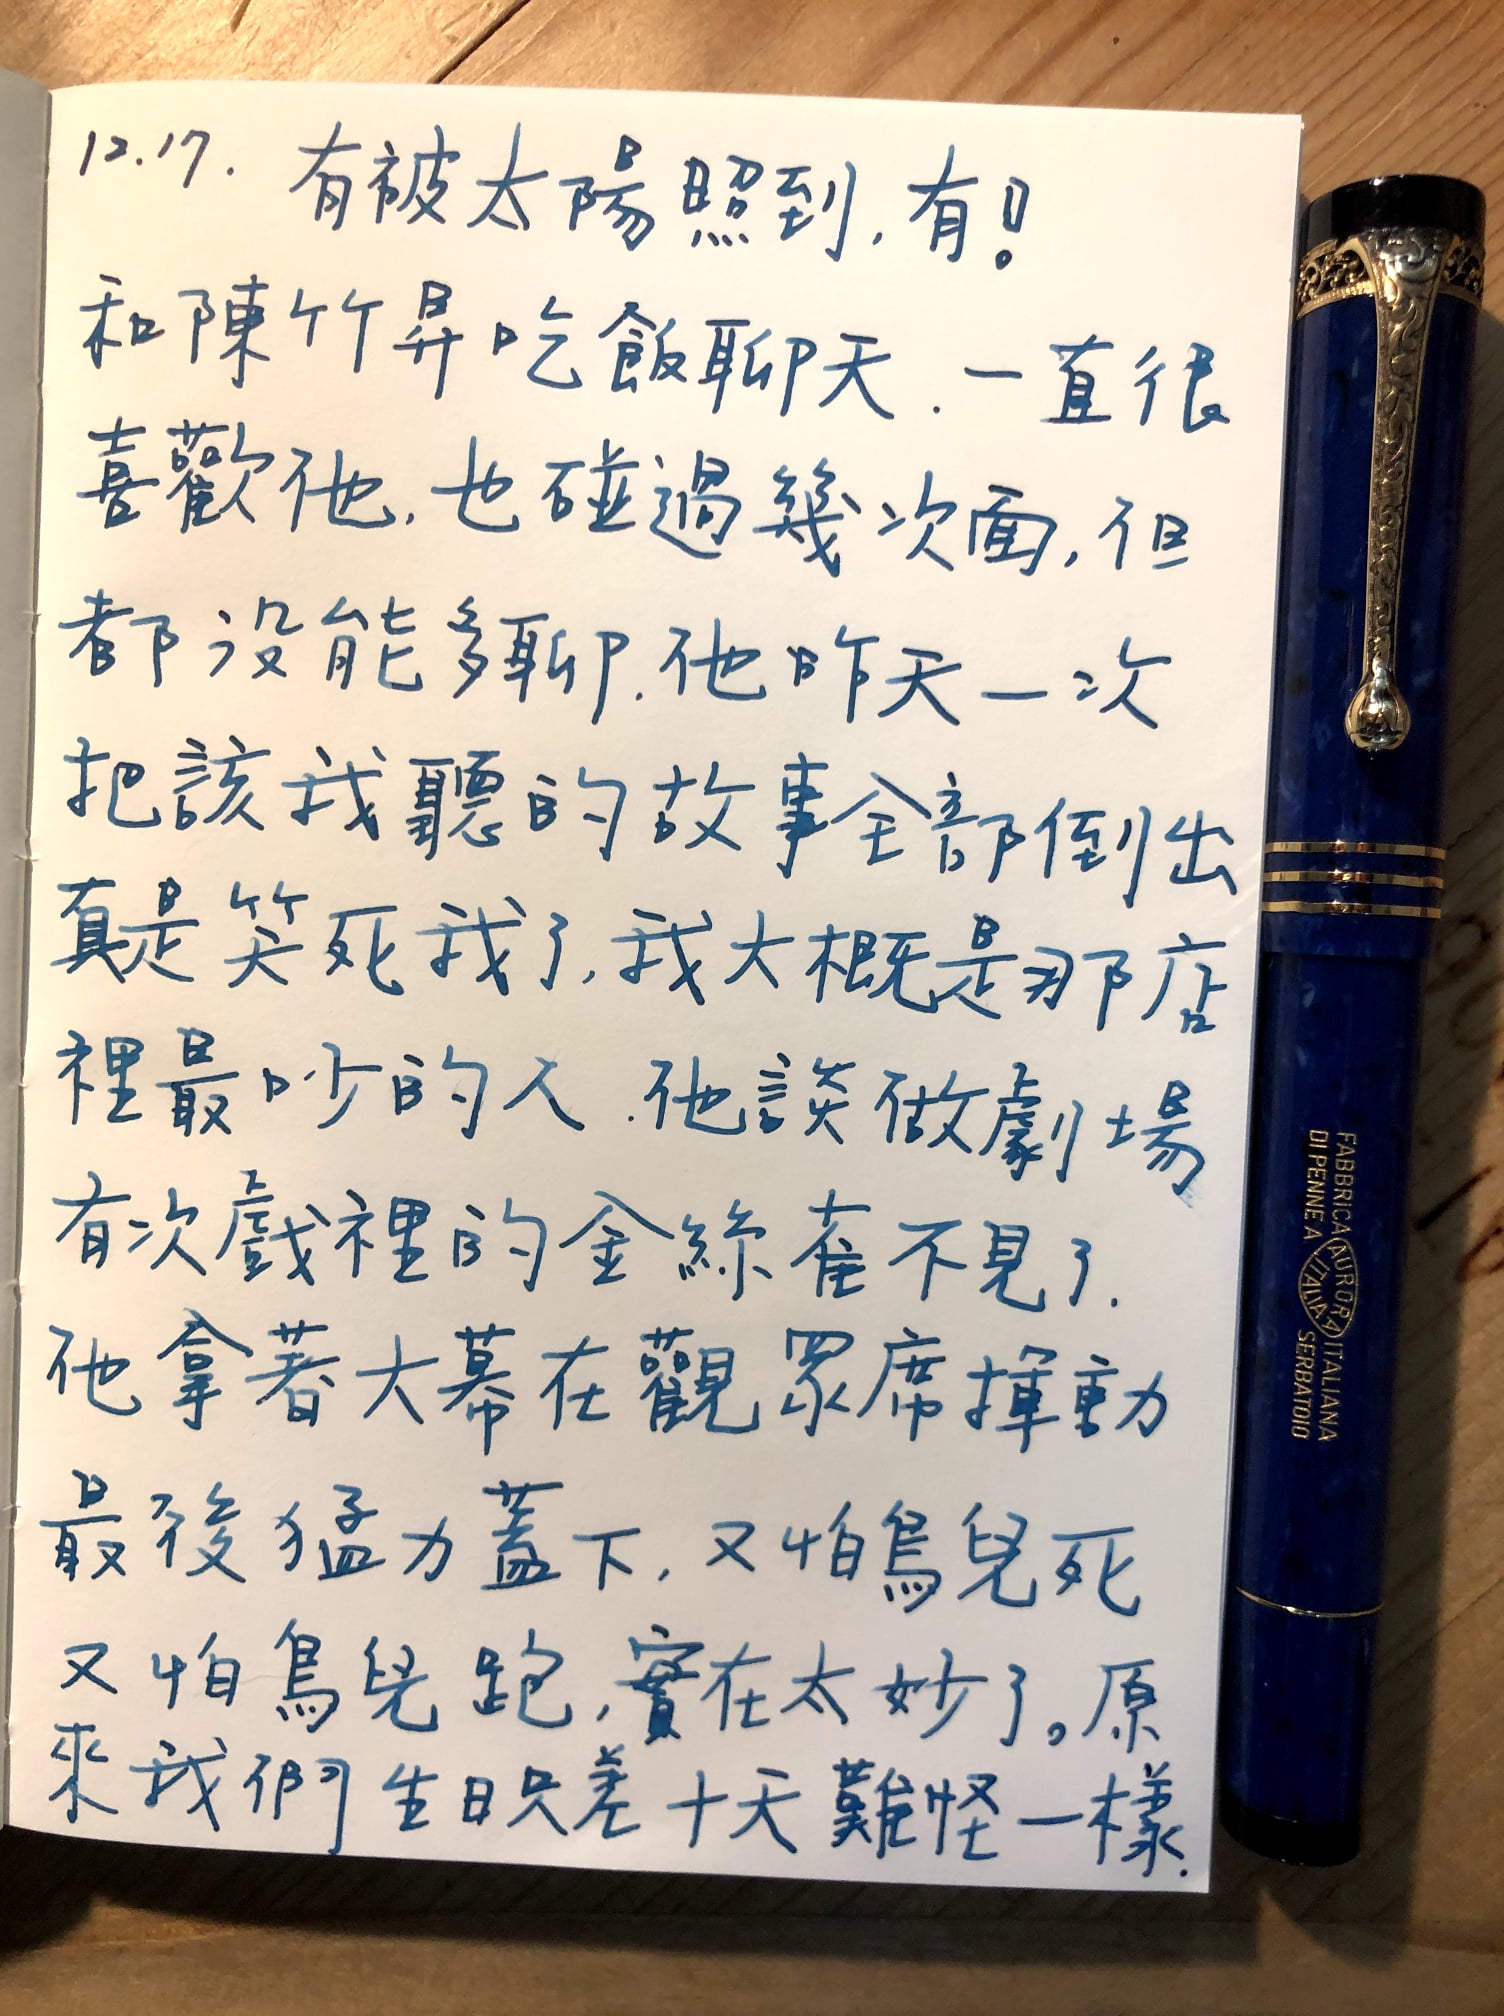 12.17. 有被太陽照到,有!
和陳竹昇吃飯聊天.一直很
喜歡他,也碰過幾次面,但
都沒能多聊.他昨天一次
把該我聽的故事全部倒出
真是笑死我了,我大概是那店
裡最吵的人.他談做劇場
有次戲裡的金絲雀不見了.
他拿著大幕在觀眾席揮動
最後猛力蓋下,又怕鳥兒死
又怕鳥兒跑,實在太妙了。原
來我們生日只差十天難怪一樣.
FABBRICA ITALIANA
DI PENNE A SERBATOIO
AURORA
ITALIA